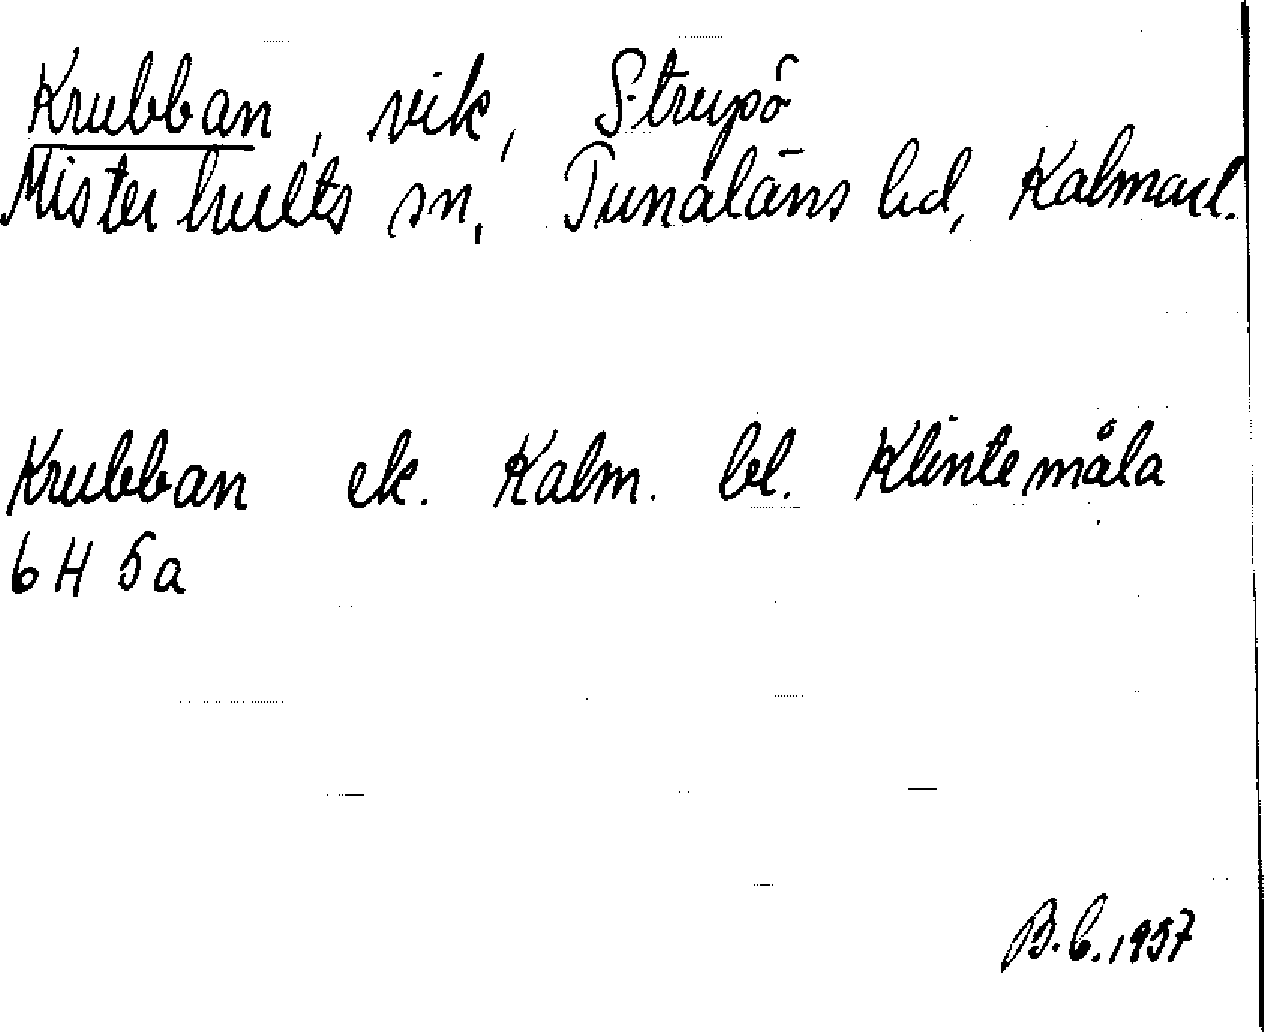 Krubban, vik, Strupö
Misterhults sn, Tunaläns hd, Kalmar l.
Krubban ek. Kalm. bl. Klintemåla
6 H 5a
B.C. 1957